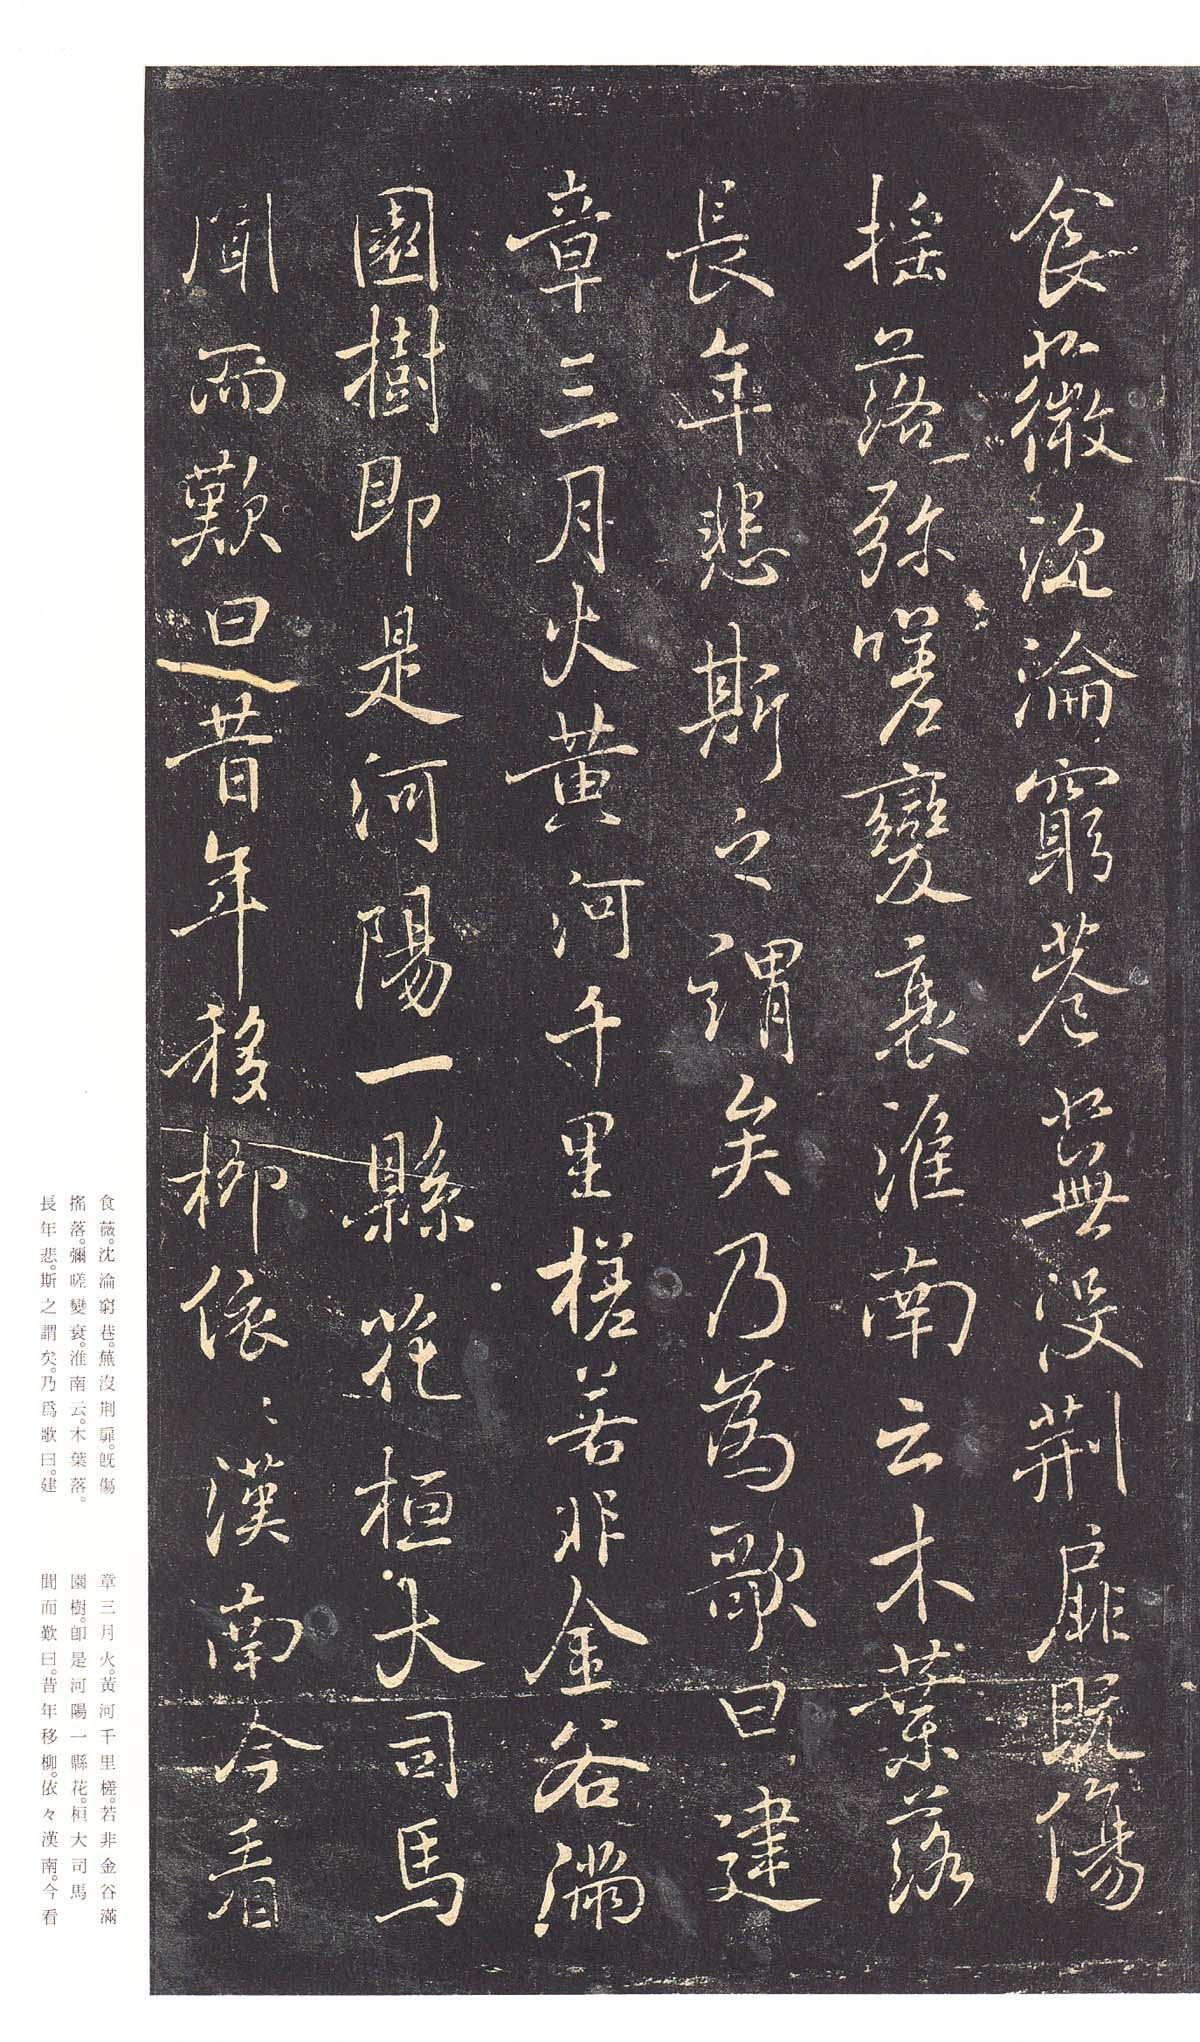 食薇沉淪窮巷蕪沒荊扉既傷
搖落弥嗟變衰淮南云木葉落
長年悲斯之謂矣乃為歌曰建
章三月火黃河千里槎若非金谷滿
園樹即是河陽一縣花桓大司馬
聞而歎曰昔年移柳依〻漢南今看
食薇。沈淪窮巷。蕪沒荆扉。既傷
搖落。彌嗟變衰。淮南云。木葉落。
長年悲。斯之謂矣。乃爲歌曰。建
章三月火。黃河千里槎。若非金谷滿
園樹。卽是河陽一縣花。桓大司馬
聞而歎曰。昔年移柳。依々漢南。今看